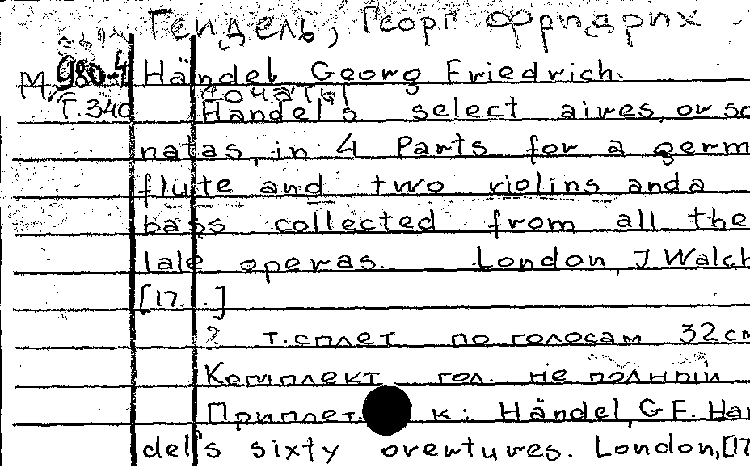 Гендель, Георг Фридрих
М 980-4 Händel Georg Friedrich.
Г.340 Сонаты
Handel's select aires, or so
natas, in 4 Parts for a germ
flute and two violins and a
bass collected from all the
late operas. London, J Walch
[17..]
2 т.сплет. по голосам 32см
Комплект гол. не полный
Приплет. к: Händel, G F. Han
del's sixty overtures. London, [17